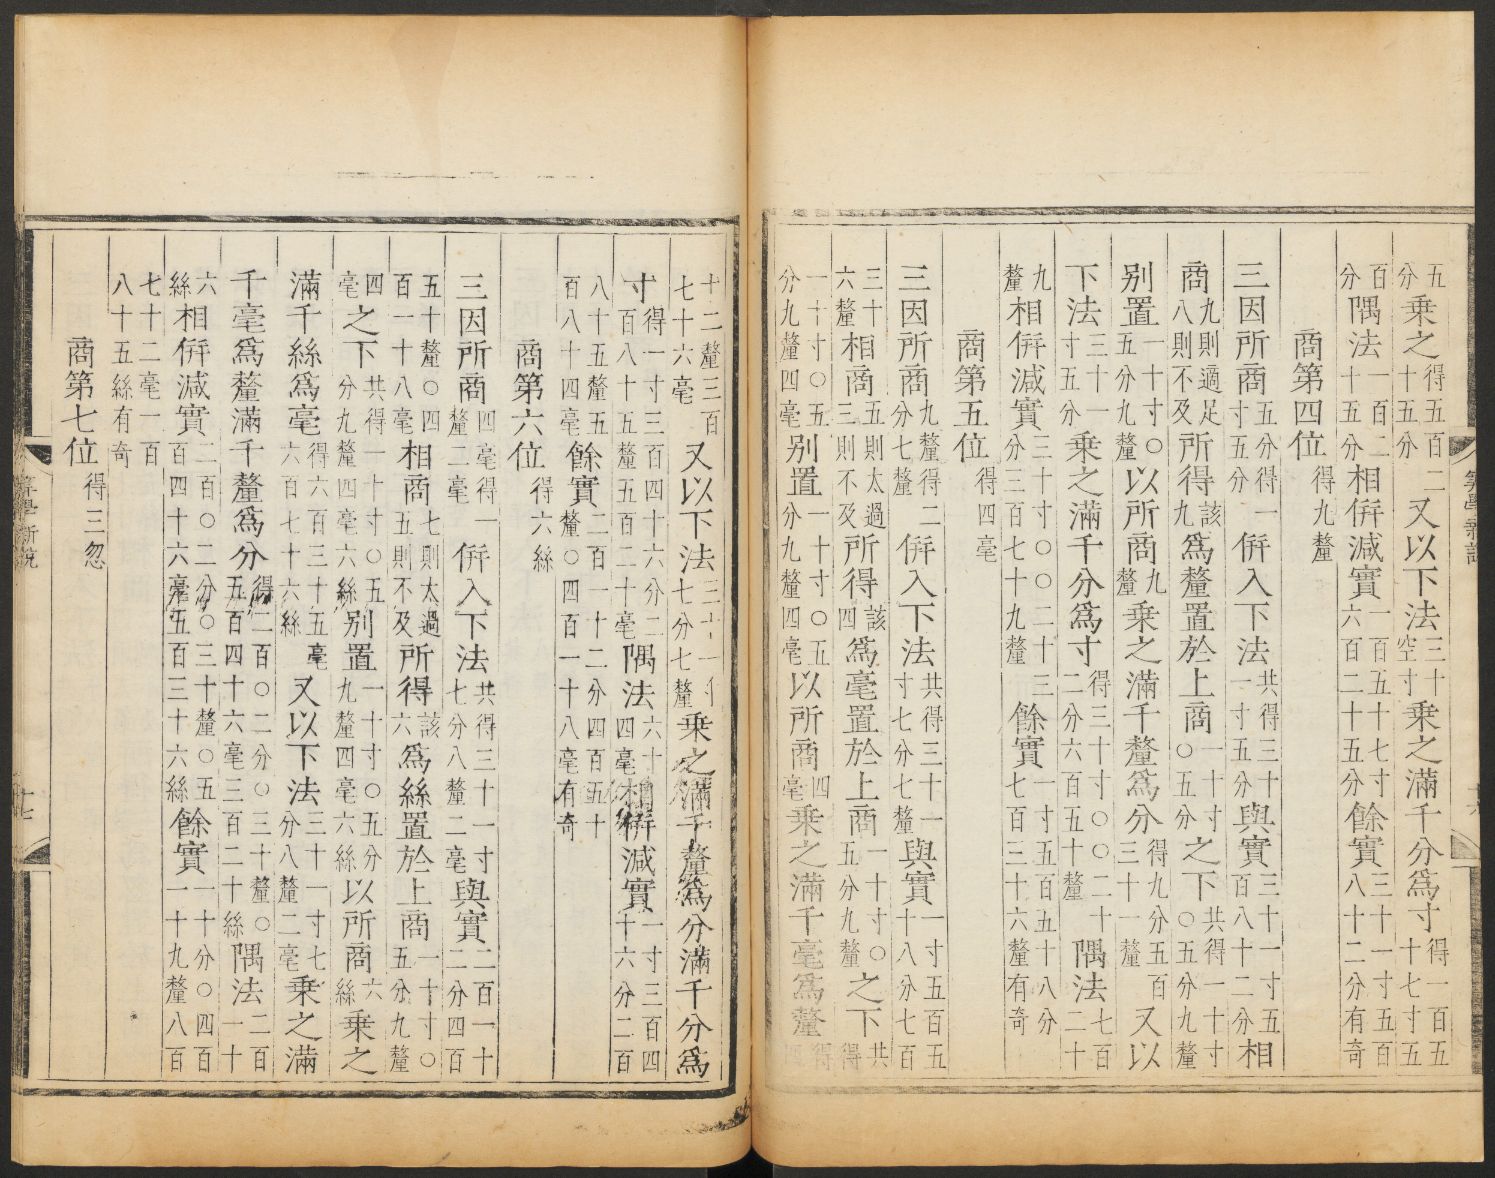 五分乘之得五百二十五分又以下法三十空寸乘之滿千分爲寸得一百五十七寸五
百分隅法一百二十五分相併減實一百五十七寸六百二十五分餘實三十一寸五百八十二分有奇
商第四位得九釐
三因所商五分得一寸五分併入下法共得三十一寸五分與實三十一寸五百八十二分相
商九則適足八則不及所得該九爲釐置於上商一十寸〇五分之下共得一十寸〇五分九釐
別置一十寸〇五分九釐以所商九釐乘之滿千釐爲分得九分五百三十一釐又以
下法三十一寸五分乘之滿千分爲寸得三十寸〇〇二十二分六百五十釐隅法七百二十
九釐相併減實三十寸〇〇二十三分三百七十九釐餘實一寸五百五十八分七百三十六釐有奇
商第五位得四毫
三因所商九釐得二分七釐併入下法共得三十一寸七分七釐與實一寸五百五十八分七百
三十六釐相商五則太過三則不及所得該四爲毫置於上商一十寸〇五分九釐之下共得
一十寸〇五分九釐四毫別置一十寸〇五分九釐四毫以所商四毫乘之滿千毫爲釐得四
十二釐三百七十六毫又以下法三十一寸七分七釐乘之滿千釐爲分滿千分爲
寸得一寸三百四十六分二百八十五釐五百二十毫隅法六十四毫相併減實一寸三百四十六分二百
八十五釐五百八十四毫餘實二百一十二分四百五十釐〇四百一十八毫有奇
商第六位得六絲
三因所商四毫得一釐二毫併入下法共得三十一寸七分八釐二毫與實二百一十二分四百
五十釐〇四百一十八毫相商七則太過五則不及所得該六爲絲置於上商一十寸〇五分九釐
四毫之下共得一十寸〇五分九釐四毫六絲別置一十寸〇五分九釐四毫六絲以所商六絲乘之
滿千絲爲毫得六百三十五毫六百七十六絲又以下法三十一寸七分八釐二毫乘之滿
千毫爲釐滿千釐爲分得二百〇二分〇三十釐〇五百四十六毫三百二十絲隅法二百一十
六絲相併減實二百〇二分〇三十釐〇五百四十六毫五百三十六絲餘實一十分〇四百一十九釐八百
七十二毫一百八十五絲有奇
商第七位得三忽
算學新說
十七